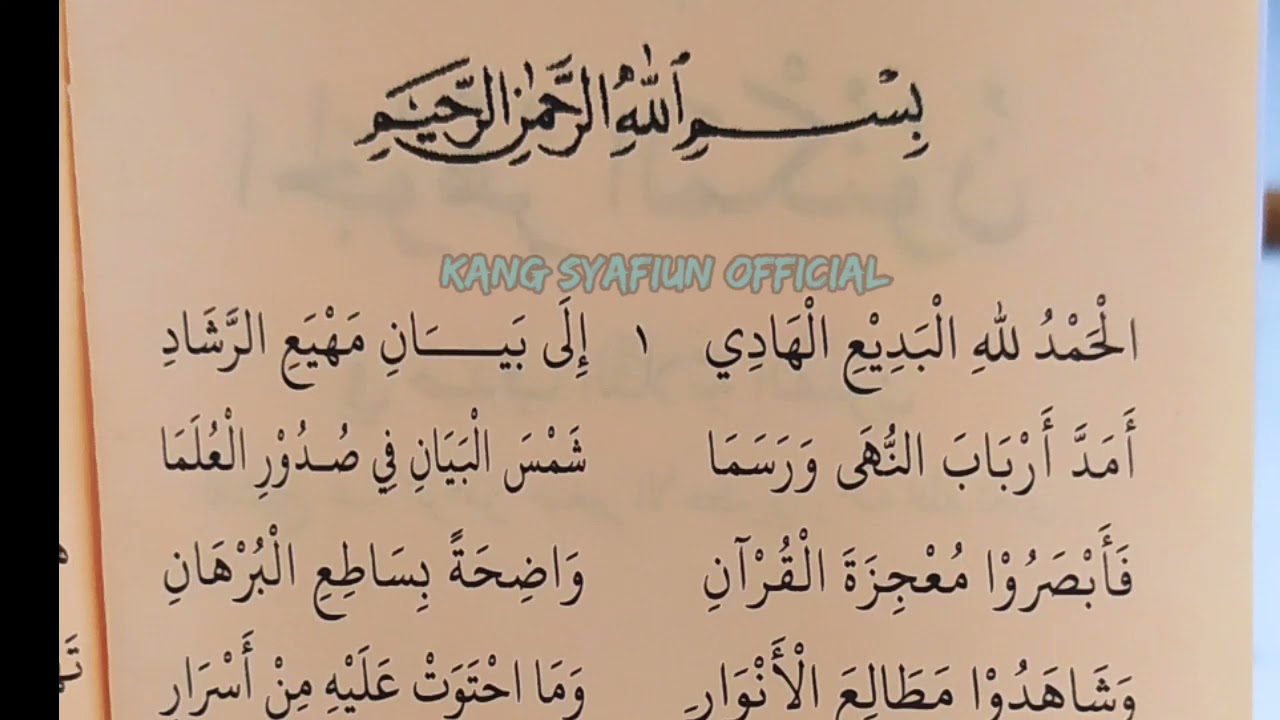 بِسْمِ ٱللَّهِ الرَّحْمٰنِ الرَّحِيْمِ
KANG SYAFIUN OFFICIAL
الْحَمْدُ لِلّٰهِ الْبَدِيْعِ الْهَادِي ١ إِلَى بَيَـــانِ مَهْيَعِ الرَّشَادِ
أَمَدَّ أَرْبَابَ النُّهَى وَرَسَمَا شَمْسَ الْبَيَانِ فِي صُدُوْرِ الْعُلَمَا
فَأَبْصَرُوْا مُعْجِزَةَ الْقُرْآنِ وَاضِحَةً بِسَاطِعِ الْبُرْهَانِ
وَشَاهَدُوْا مَطَالِعَ الْأَنْوَارِ وَمَا احْتَوَتْ عَلَيْهِ مِنْ أَسْرَارِ